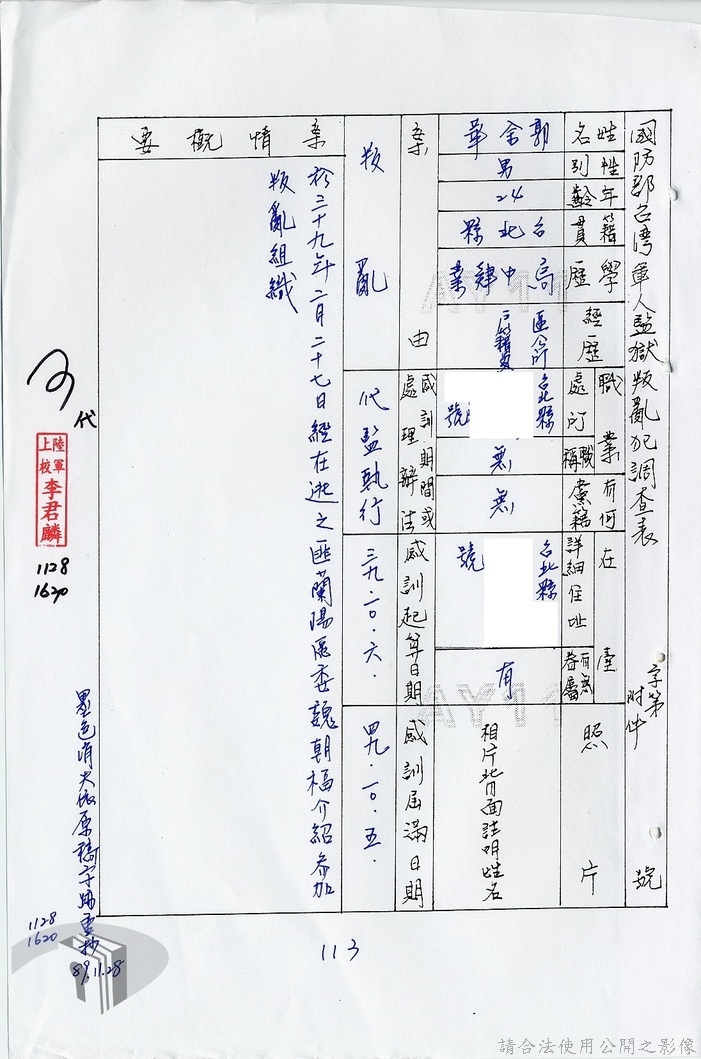 國防部台灣軍人監獄叛亂犯調查表
字第 號
附件
姓名 郭金華
性別 男
年齡 24
籍貫 台北縣
學歷 高中肄業
經歷 區公所戶籍員
職業
處所 台北縣 號
職稱 無
有何黨籍 無
在臺
詳細住址 台北縣 號
有無眷屬 有
照片
相片背面註明姓名
案由
叛亂
感訓期間或處理辦法
代監執行
感訓起算日期
三九.一〇.六.
感訓屆滿日期
四九.一〇.五.
案情概要
於三十九年二月二十七日經在逃之匪蘭陽區委魏朝福介紹參加
叛亂組織
代
陸軍上校李君麟
1128
1620
墨色消失依原稿字跡重抄
89.11.28
1128
1620
113
請合法使用公開之影像